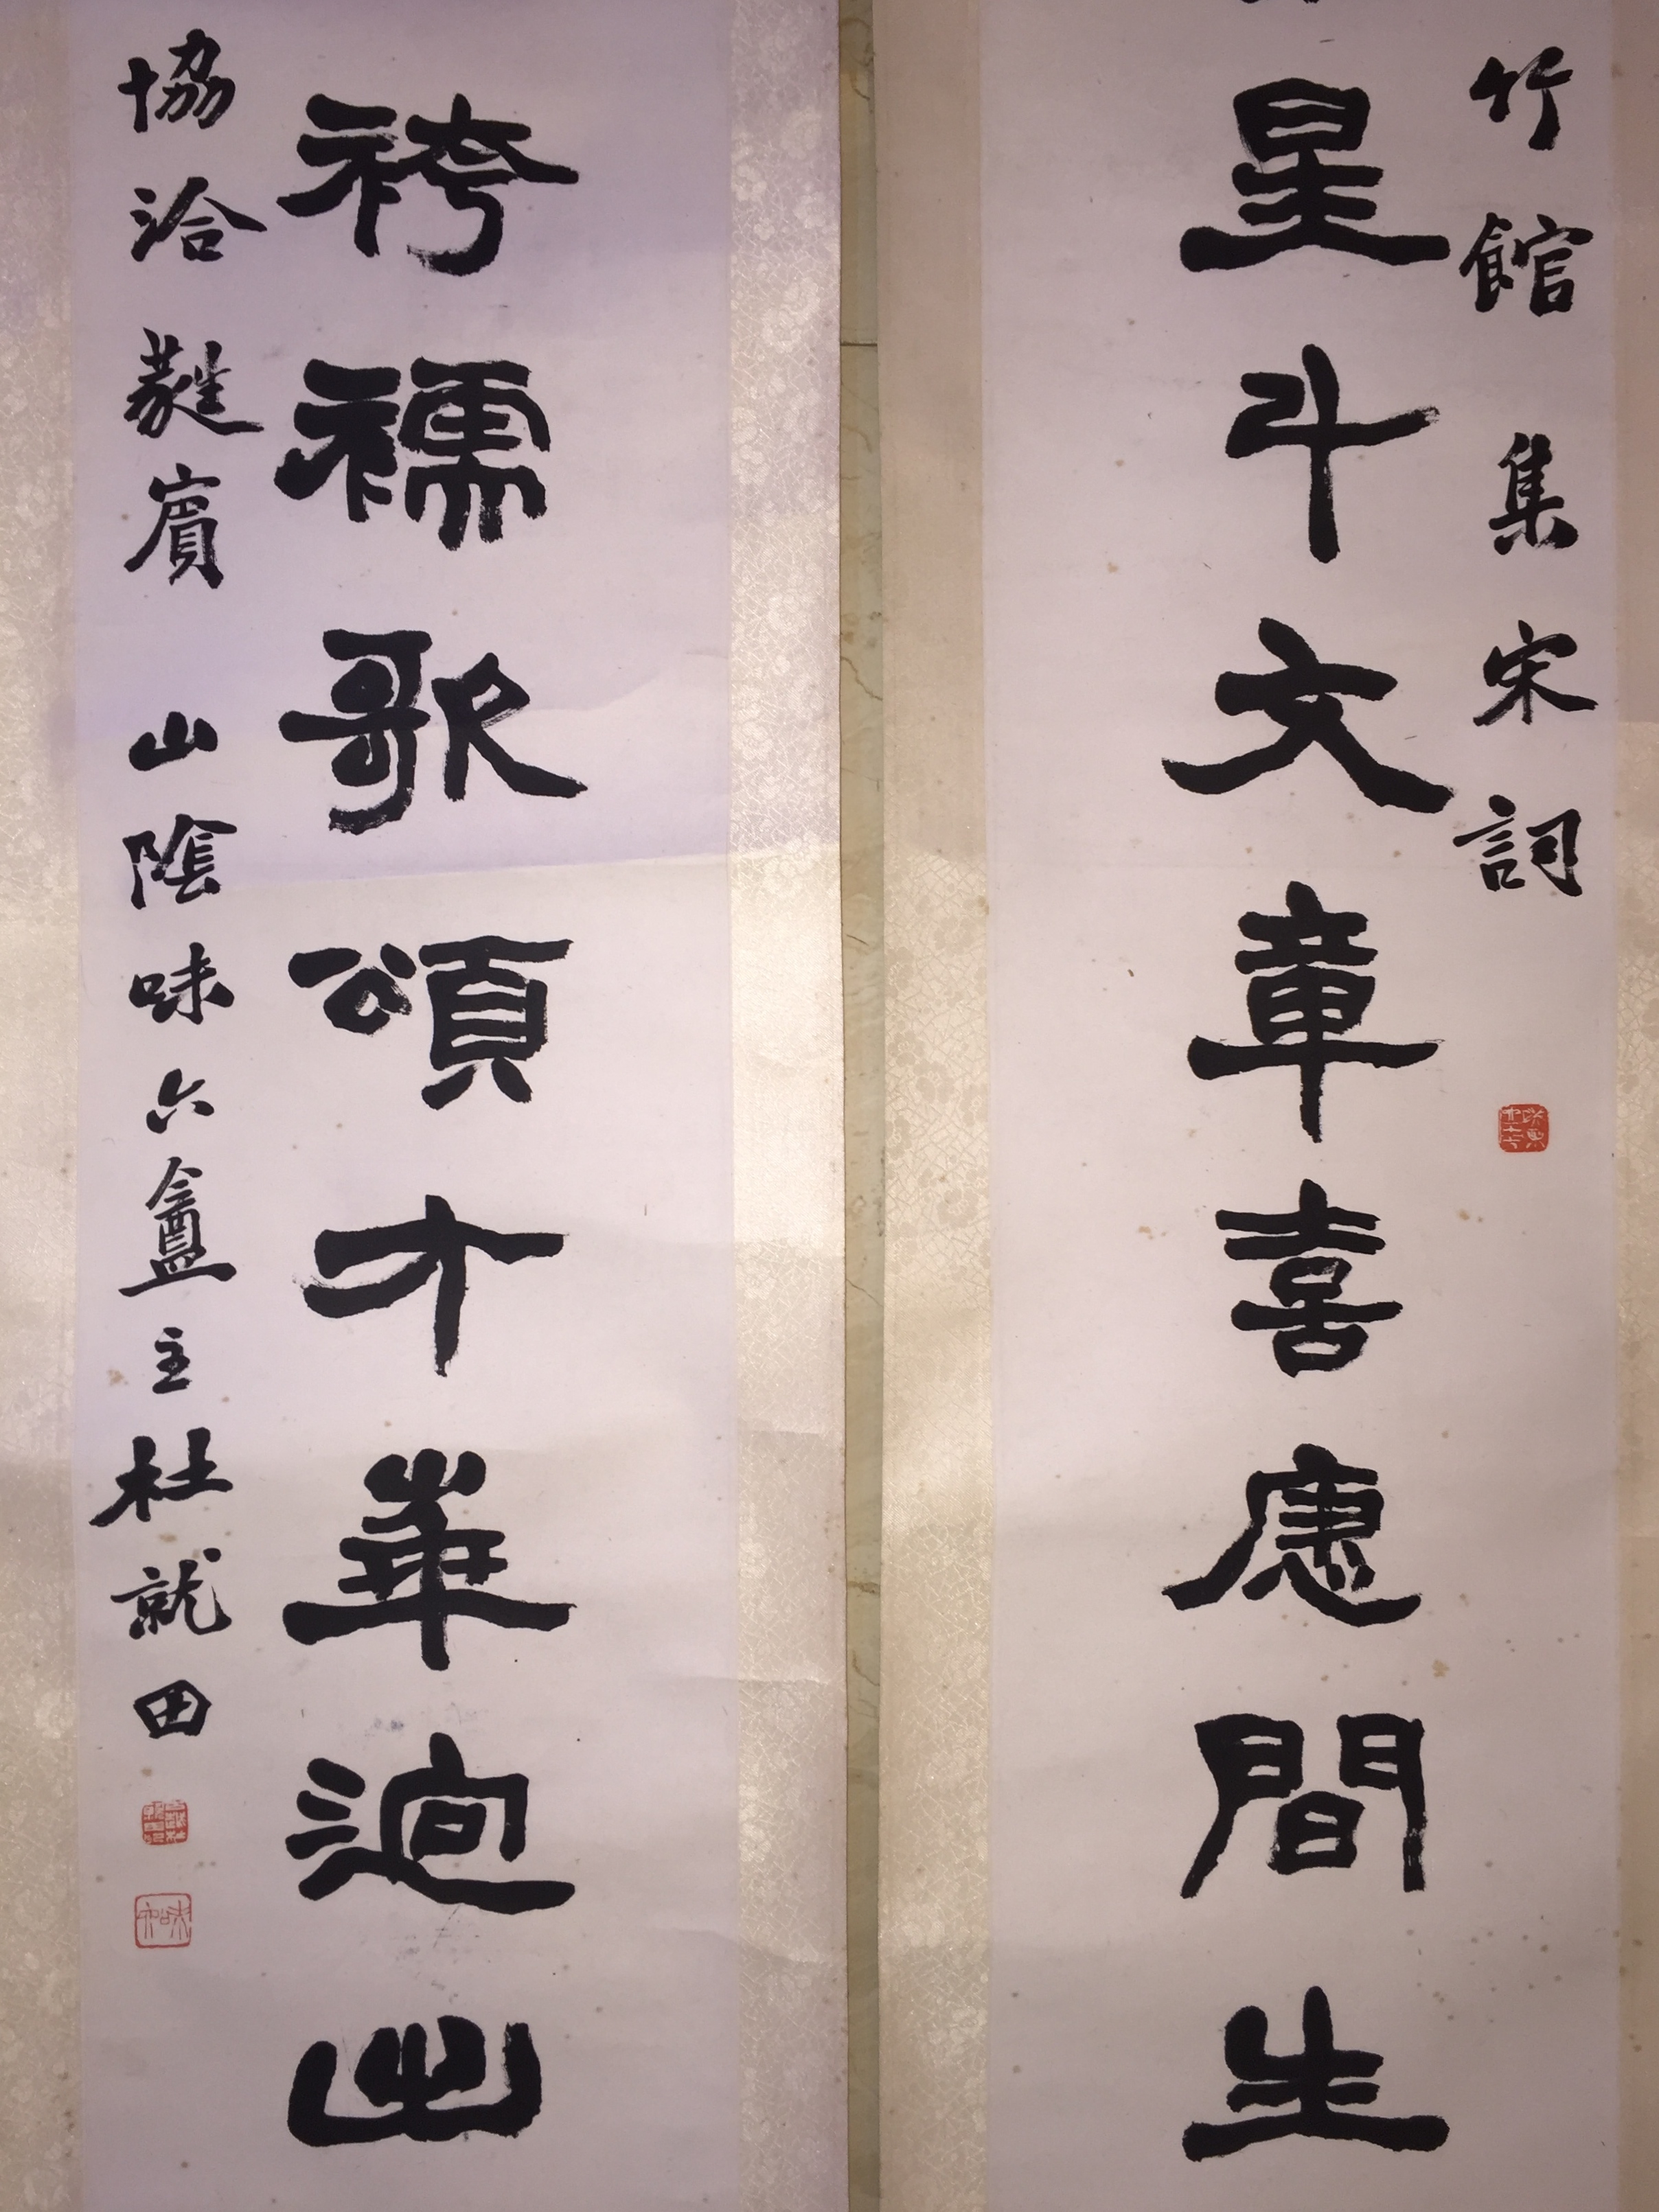 竹館 集宋詞
星斗文章喜應間生
袴襦歌頌才華迥出
協洽蕤賓 山陰味六盦主杜就田